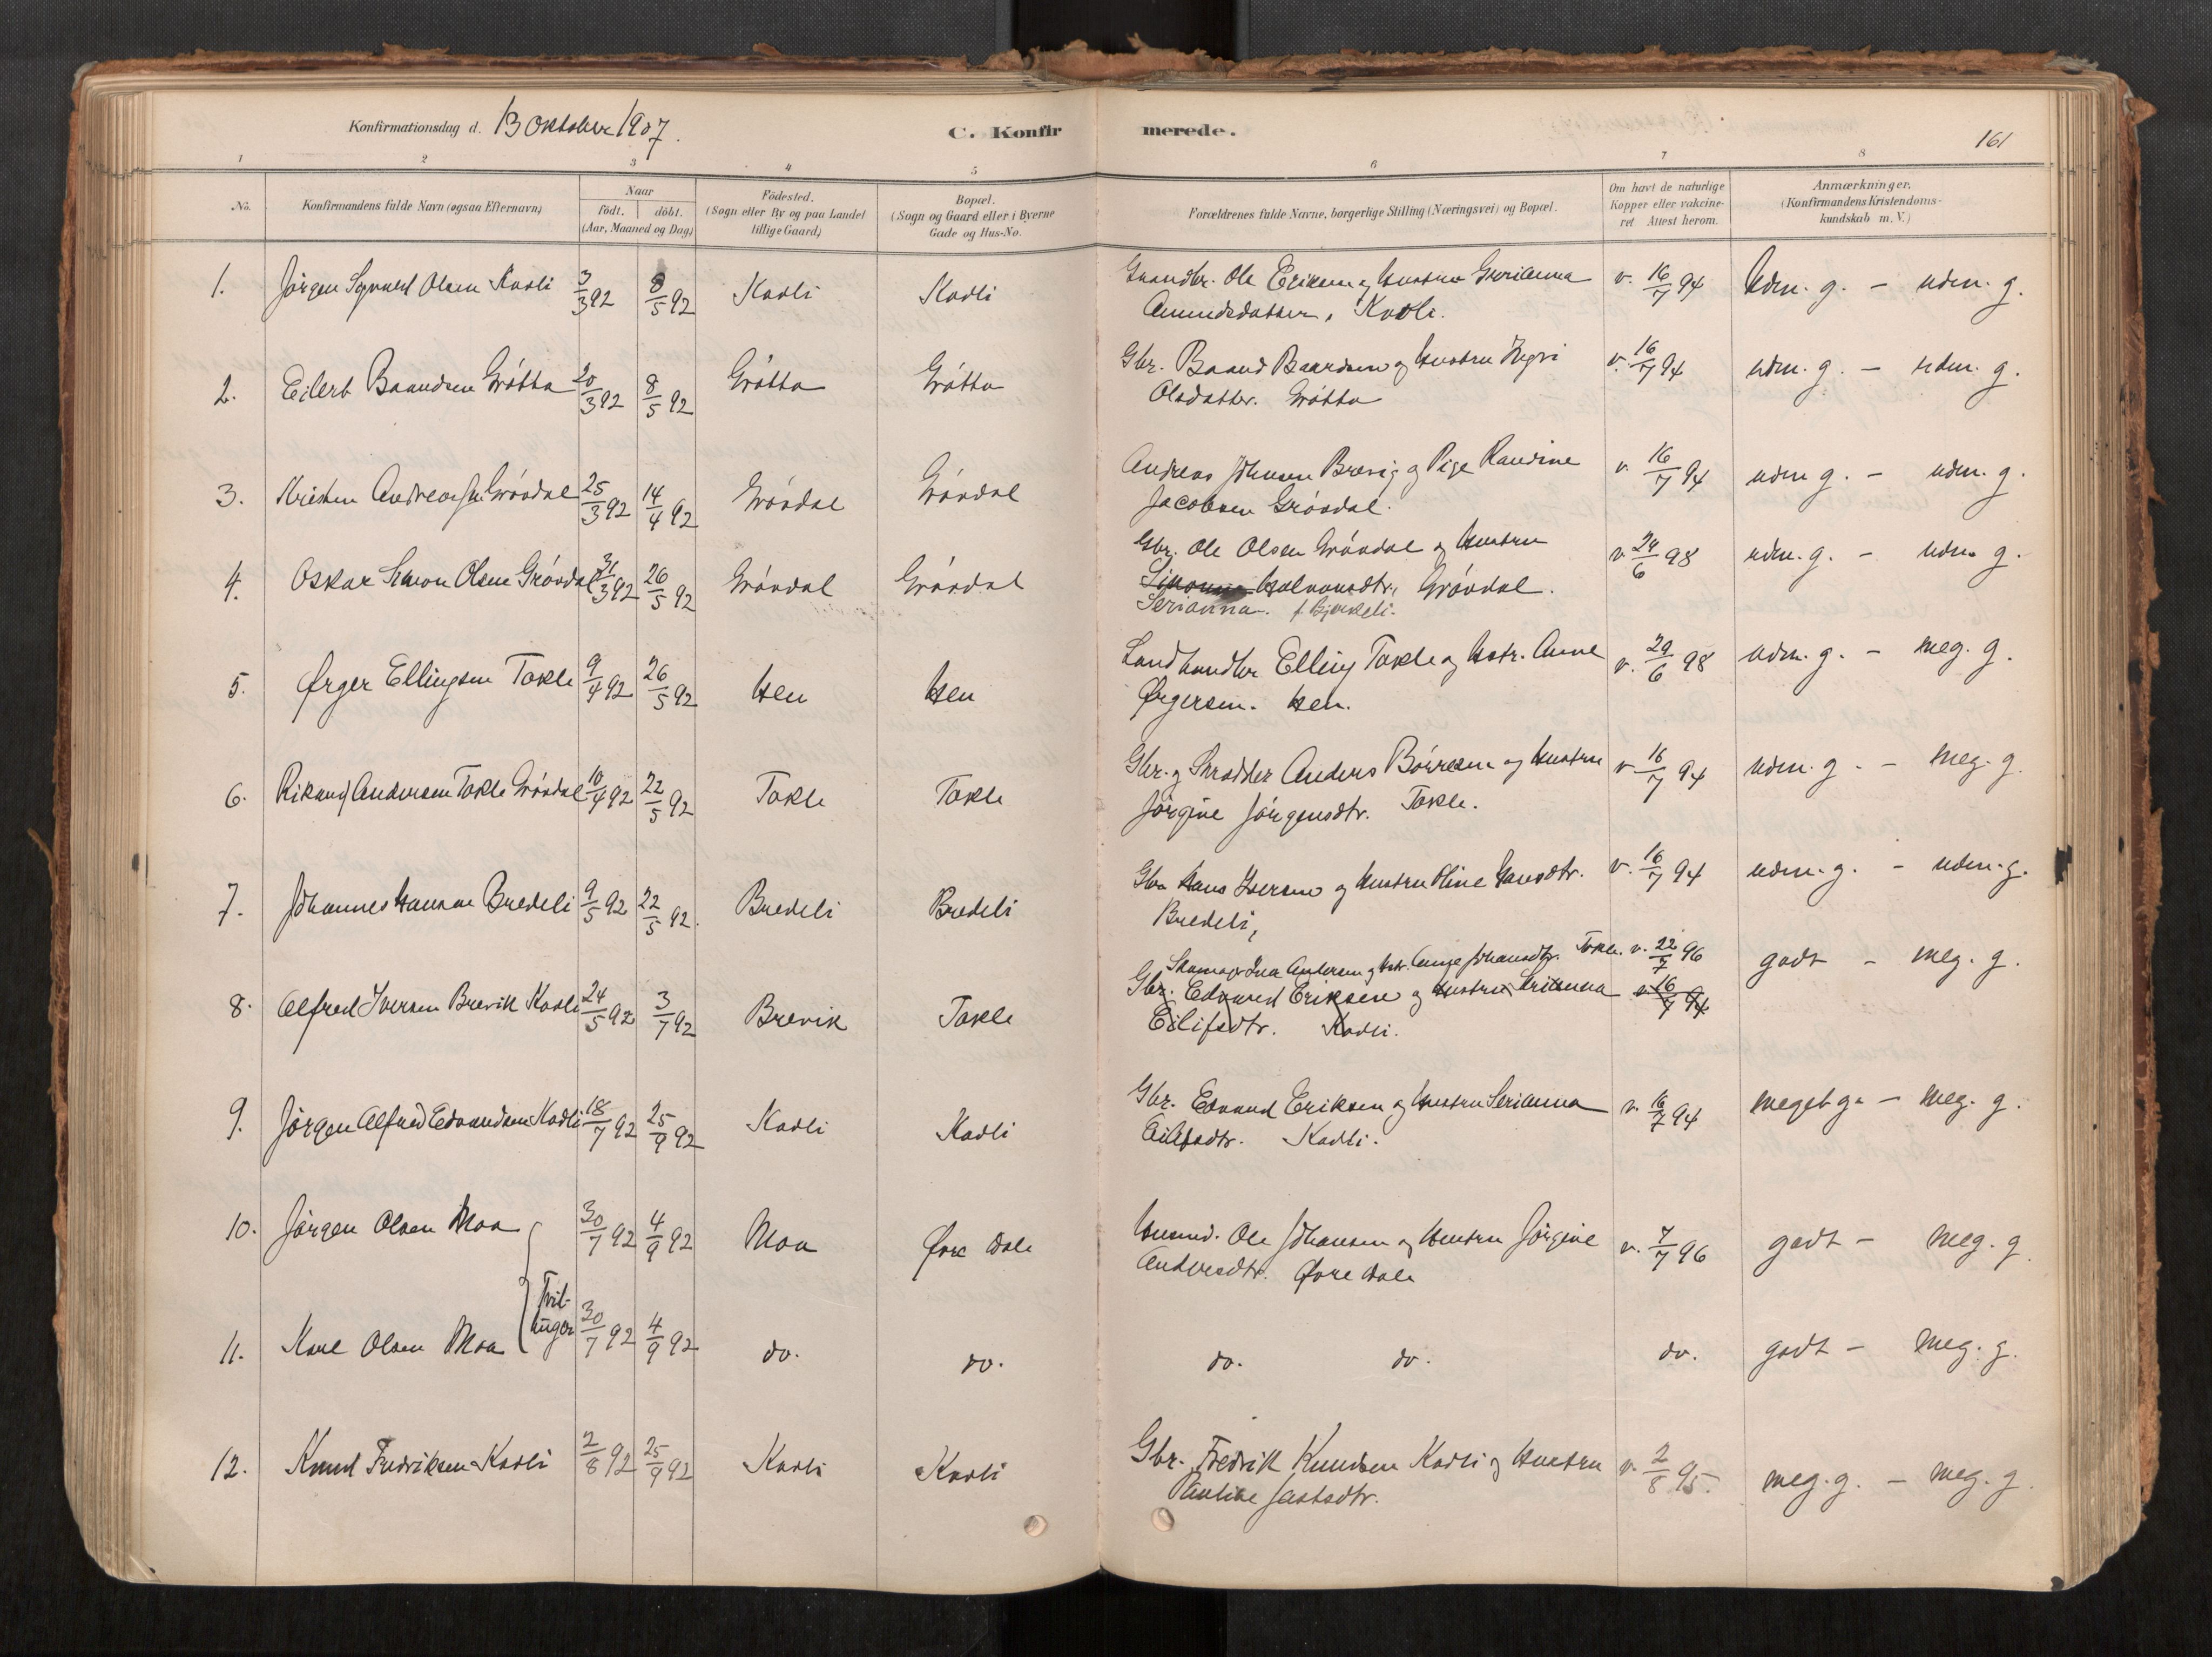 Konfirmationsdag d. 13 Oktober 1907.
C. Konfirmerede.
161
1 2 3 4 5 6 7 8
No.
Konfirmandens fulde Navn (ogsaa Efternavn)
Naar
födt. döbt.
(Aar, Maaned og Dag)
Födested.
(Sogn eller By og paa Landet
tillige Gaard)
Bopæl.
(Sogn og Gaard eller i Byerne
Gade og Hus-No.
Forældrenes fulde Navne, borgerlige Stilling (Næringsvei) og Bopæl.
Om havt de naturlige
Kopper eller vakcine-
ret Attest herom.
Anmærkninger.
(Konfirmandens Kristendoms-
kundskab m. V.)
1. Jørgen Olsen Kavli 3/3 92 8/5 92 Kavli Kavli Ole Eriksen og Hustru v. 16/7 94 Udm. g. - udm. g.
Amundsdatter, Kavli.
2. Eilert Baardsen Grøtta 20/3 92 8/5 92 Grøtta Grøtta Gbr. Baard Baardsen og Hustru v. 16/7 94 udm. g. - udm. g.
Olsdatter. Grøtta
3. Kristen Andreas Grøvdal 25/3 92 14/4 92 Grøvdal Grøvdal Andreas Johnsen Brevig og Pige Randine v. 16/7 94 udm g. - udm. g.
Jacobsen Grøvdal.
4. Oskar Simon Olsen Grøvdal 31/3 92 26/5 92 Grøvdal Grøvdal Gbr. Ole Olsen Grøvdal og Hustru v. 24/6 98 udm. g. - udm. g.
Halvorsdtr, Grøvdal.
Serianna. f. Bjerkeli.
5. Ørger Ellingsen Tokle 9/4 92 26/5 92 Hen Hen Landhandler Elling Tokle og Hstr. Anne v. 29/6 98 udm. g. - meg. g.
Ørgersen. Hen.
6. Rikard Andersen Tokle Grøvdal 10/4 92 22/5 92 Tokle Tokle Gbr. og Skrædder Anders Børresen og Hustru v. 16/7 94 udm. g. - meg. g.
Jørgine Jørgensdtr. Tokle.
7. Johannes Hansen Bredeli 9/5 92 22/5 92. Bredeli Bredeli Gbr. Hans Iversen og Hustru Oline Hansdtr. v. 16/7 94 udm. g. - udm. g.
Bredeli,
Skomager Iver Andersen og Hstr. Johansdtr. Tokle. v. 22/7 96 godt - meg. g.
8. Alfred Iversen Brevik Kavli 24/5 92 3/7 92 Brevik Tokle Gbr. Edvard Eriksen og Hustru Serianna v. 16/7 94
Eilifsdtr. Kavli.
9. Jørgen Alfred Edvardsen Kavli 18/7 92 25/9 92 Kavli Kavli Gbr. Edvard Eriksen og Hustru Serianna v. 16/7 94 meget g. - meg. g.
Eilifsdtr. Kavli.
10. Jørgen Olsen Moa 30/7 92 4/9 92 Moa Øvre Dale Husmd. Ole Johansen og Hustru Jørgine v. 7/7 96 godt - meg. g
Andersdtr. Øvre Dale
Tvil-
linger
11. Karl Olsen Moa 30/7 92 4/9 92 do. do. do. do. do. godt - meg. g.
12. Knud Fredriksen Kavli 2/8 92 25/9 92 Kavli Kavli Gbr. Fredrik Knudsen Kavli og Hustru v. 2/8 95. meg. g. - meg. g.
Pauline Jastsdtr.